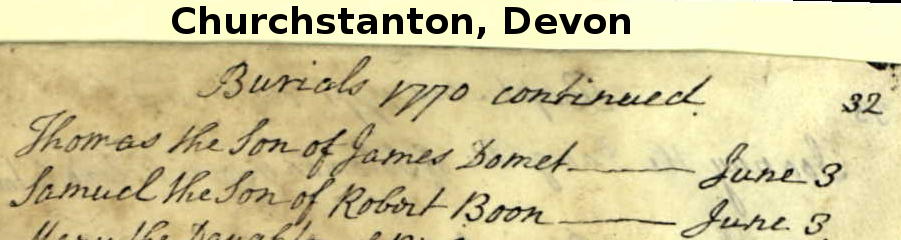 Churchstanton, Devon
Burials 1770 continued
32
Thomas the Son of James Domet June 3
Samuel the Son of Robert Boon June 3
Mary the Daugh